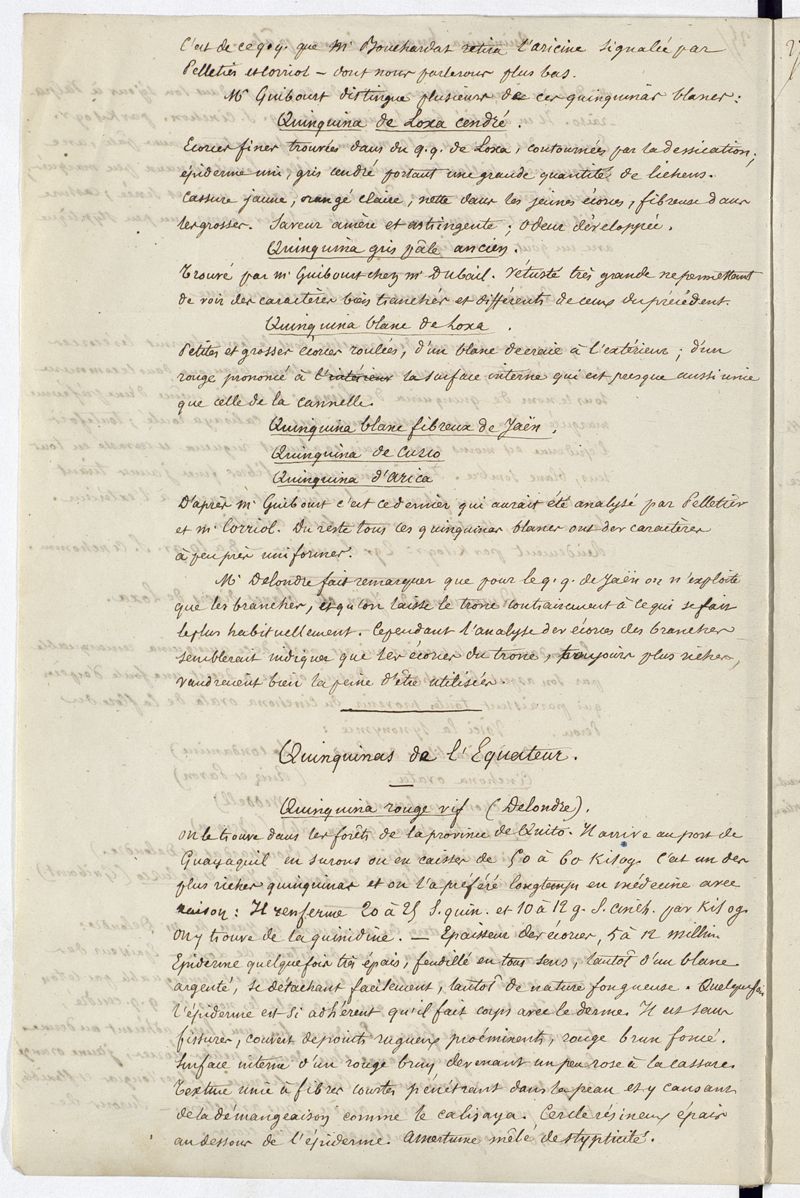 C'est de ce q.q. que Mr Bouchardat retira l'aricine signalée par
Pelletier et Corriol – dont nous parlerons plus bas.
Mr Guibourt distingue plusieurs de ces quinquinas blancs :
Quinquina de Loxa cendré.
Ecorces fines trouvées dans du q.q. de Loxa, contournées par la dessication ;
épiderme uni, gris cendré portant une grande quantité de lichens.
Cassure jaune, orangé claire, nette dans les jeunes écorces, fibreuse dans
les grosses. Saveur amère et astringente ; odeur développée.
Quinquina gris pâle ancien.
Trouvé par Mr Guibourt chez Mr Dubail. Vétusté très grande ne permettant
de voir des caractères bien tranchés et différents de ceux du précédent.
Quinquina blanc de Loxa.
Petites et grosses écorces roulées, d'un blanc de craie à l'extérieur ; d'un
rouge prononcé à l'intérieur la surface interne qui est presque aussi unie
que celle de la cannelle.
Quinquina blanc fibreux de Jaën.
Quinquina de Cusco
Quinquina d'Arica
D'après Mr Guibourt c'est ce dernier qui aurait été analysé par Pelletier
et Mr Corriol. Du reste tous ces quinquinas blancs ont des caractères
à peu près uniformes.
Mr Delondre fait remarquer que pour le q.q. de Jaën on n'exploite
que les branches, et qu'on laisse le tronc contrairement à ce qui se fait
le plus habituellement. Cependant l'analyse des écorces des branches
semblerait indiquer que les écorces du tronc, toujours plus riches,
vaudraient bien la peine d'être utilisées.
Quinquinas de l'Equateur.
Quinquina rouge vif (Delondre).
On le trouve dans les forêts de la province de Quito. Il arrive au port de
Guayaquil en surons ou en caisses de 50 à 60 Kilog. C'est un des
plus riches quinquinas et on l'a préféré longtemps en médecine avec
raison : Il renferme 20 à 25 S. quin. et 10 à 12 g. S. cinch. par Kilog.
On y trouve de la quinidine. — Epaisseur des écorces, 5 à 12 millim.
Epiderme quelquefois très épais, feuilleté en tous sens, tantôt d'un blanc
argenté, se détachant facilement, tantôt de nature fongueuse. Quelquefois
l'épiderme est si adhérent qu'il fait corps avec le derme. Il est sans
fissures, couvert de points rugueux proéminents, rouge brun foncé.
Surface interne d'un rouge brun devenant un peu rose à la cassure.
Texture unie à fibres courtes pénétrant dans la peau et y causant
de la démangeaison comme le calisaya. Cercle résineux épais
au dessous de l'épiderme. Amertume mêlé de stypticité.